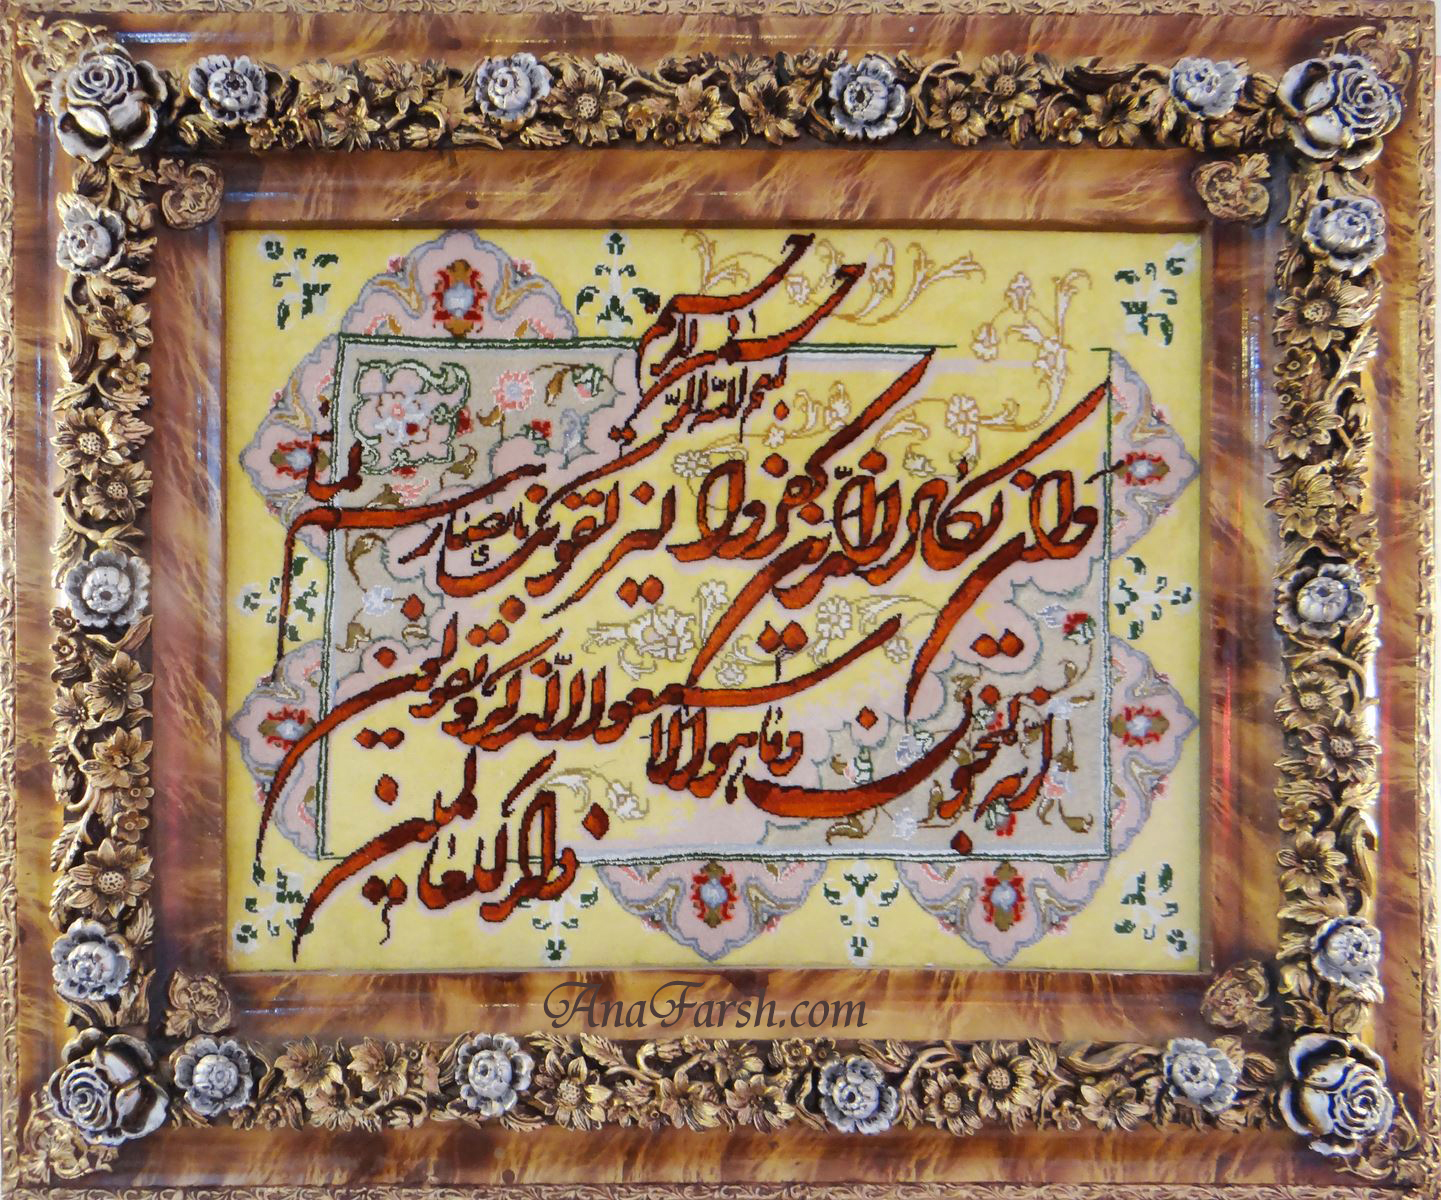 بسم الله الرحمن الرحیم
وان یکاد الذین کفروا لیزلقونک بابصارهم
لما سمعوا الذکر و یقولون
انه لمجنون وما هو الا
ذکر للعالمین
AnaFarsh.com